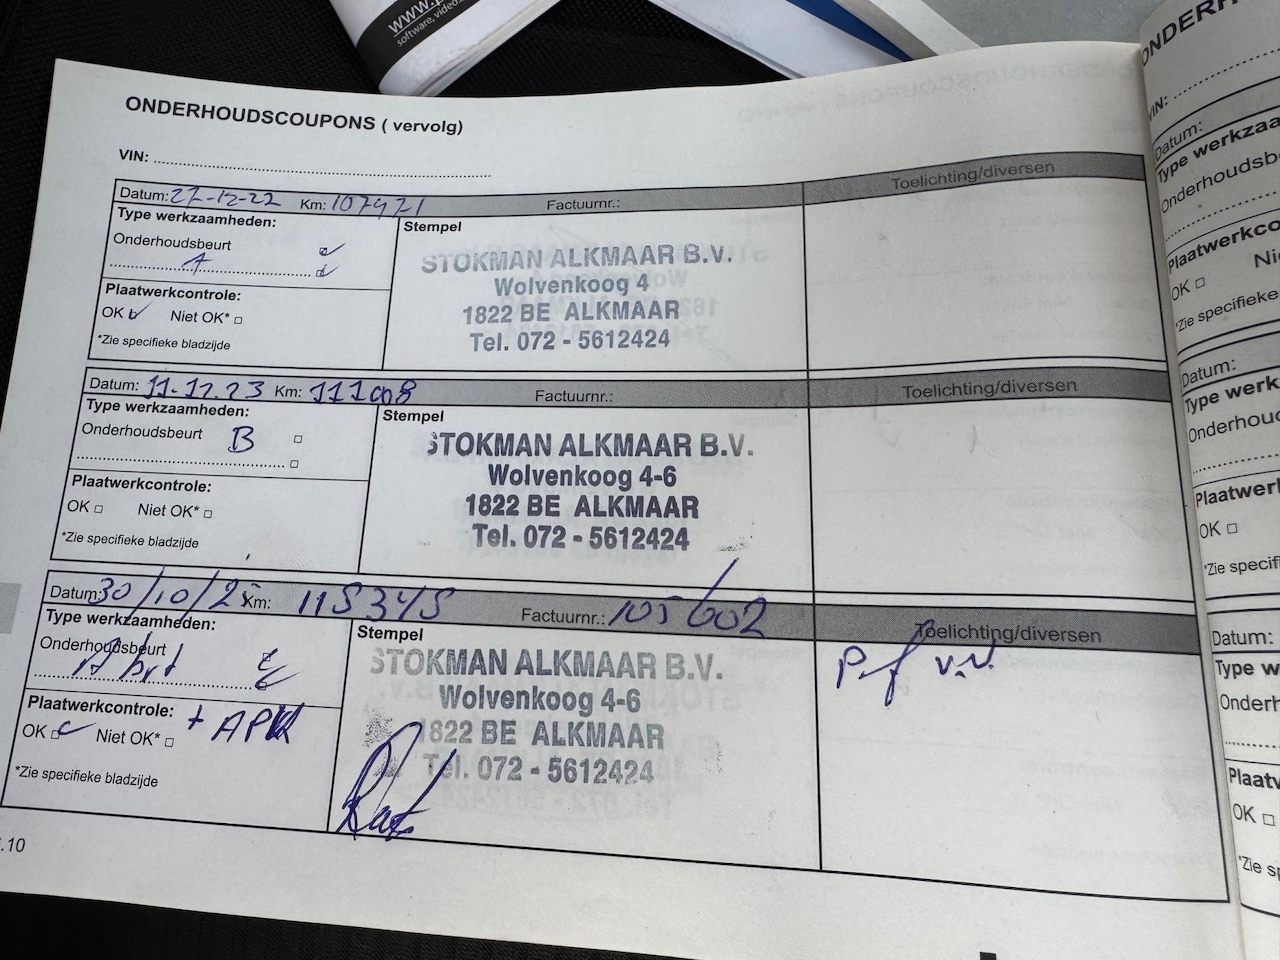 www.p
software, video
ONDERHOUDSCOUPONS ( vervolg)
VIN:
Datum: 27-12-22 Km: 107471 Factuurnr.: Toelichting/diversen
Type werkzaamheden:
Onderhoudsbeurt
A
Plaatwerkcontrole:
OK Niet OK*
*Zie specifieke bladzijde
Stempel
STOKMAN ALKMAAR B.V.
Wolvenkoog 4
1822 BE ALKMAAR
Tel. 072 - 5612424
Datum: 11-12.23 Km: 111008 Factuurnr.: Toelichting/diversen
Type werkzaamheden:
Onderhoudsbeurt B
Plaatwerkcontrole:
OK Niet OK*
*Zie specifieke bladzijde
Stempel
STOKMAN ALKMAAR B.V.
Wolvenkoog 4-6
1822 BE ALKMAAR
Tel. 072 - 5612424
Datum: 30/10/25 Km: 115345 Factuurnr.: 105602 Toelichting/diversen
Type werkzaamheden:
Onderhoudsbeurt
A brt
Plaatwerkcontrole: + APK
OK Niet OK*
*Zie specifieke bladzijde
Stempel
STOKMAN ALKMAAR B.V.
Wolvenkoog 4-6
1822 BE ALKMAAR
Tel. 072 - 5612424
.10
ONDERH
VIN:
Datum:
Type werkzaa
Onderhoudsb
Plaatwerkco
OK Nie
*Zie specifieke
Datum:
Type werkz
Onderhoud
Plaatwerk
OK
*Zie specif
Datum:
Type w
Onderh
Plaatw
OK
*Zie sp